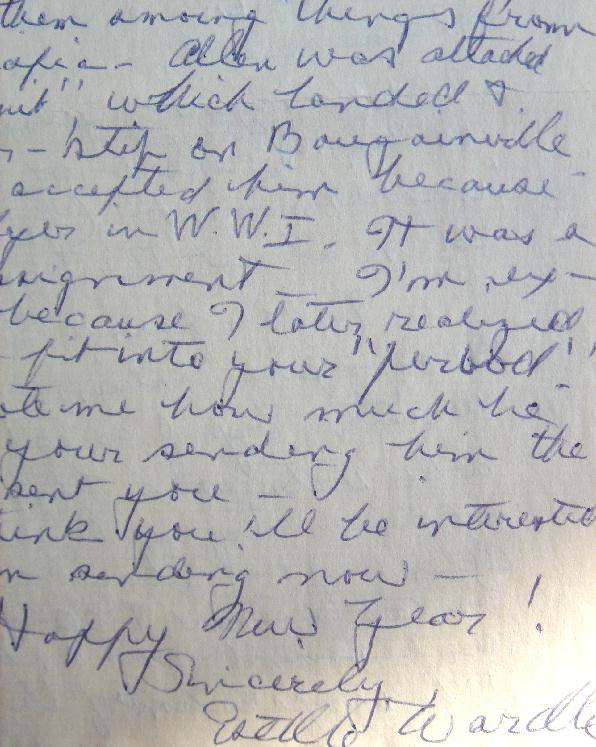 them among things from
Allen was attached
which landed &
- step on Bougainville
accepted him because
in W.W.I. It was a
I'm ex-
because I later realized
- fit into your "period"
me how much he
your sending him the
sent you -
you'll be interested
sending now -
Happy New Year!
Sincerely
Wardle